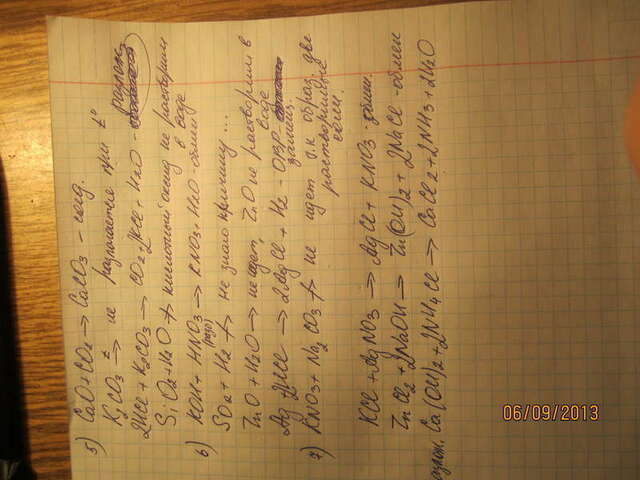 5) CaO + CO2 → CaCO3 - соед.
K2CO3 →t не разлагается при t°
2HCl + K2CO3 → CO2 + 2KCl + H2O - разлож.
SiO2 + H2O ↛ кислотный оксид не растворим
в воде
6) KOH + HNO3 → KNO3 + H2O - обмен
(разб)
SO2 + H2 ↛ не знаю причину ...
ZnO + H2O → не идет, ZnO не растворим в
воде
Ag + 2HCl → 2AgCl + H2 - ОВР
замещ.
7) KNO3 + Na2CO3 ↛ не идет т.к образ. две
растворимые
соли.
KCl + AgNO3 → AgCl + KNO3 - обмен.
ZnCl2 + 2NaOH → Zn(OH)2 + 2NaCl - обмен
разлож. Ca(OH)2 + 2NH4Cl → CaCl2 + 2NH3 + 2H2O
06/09/2013